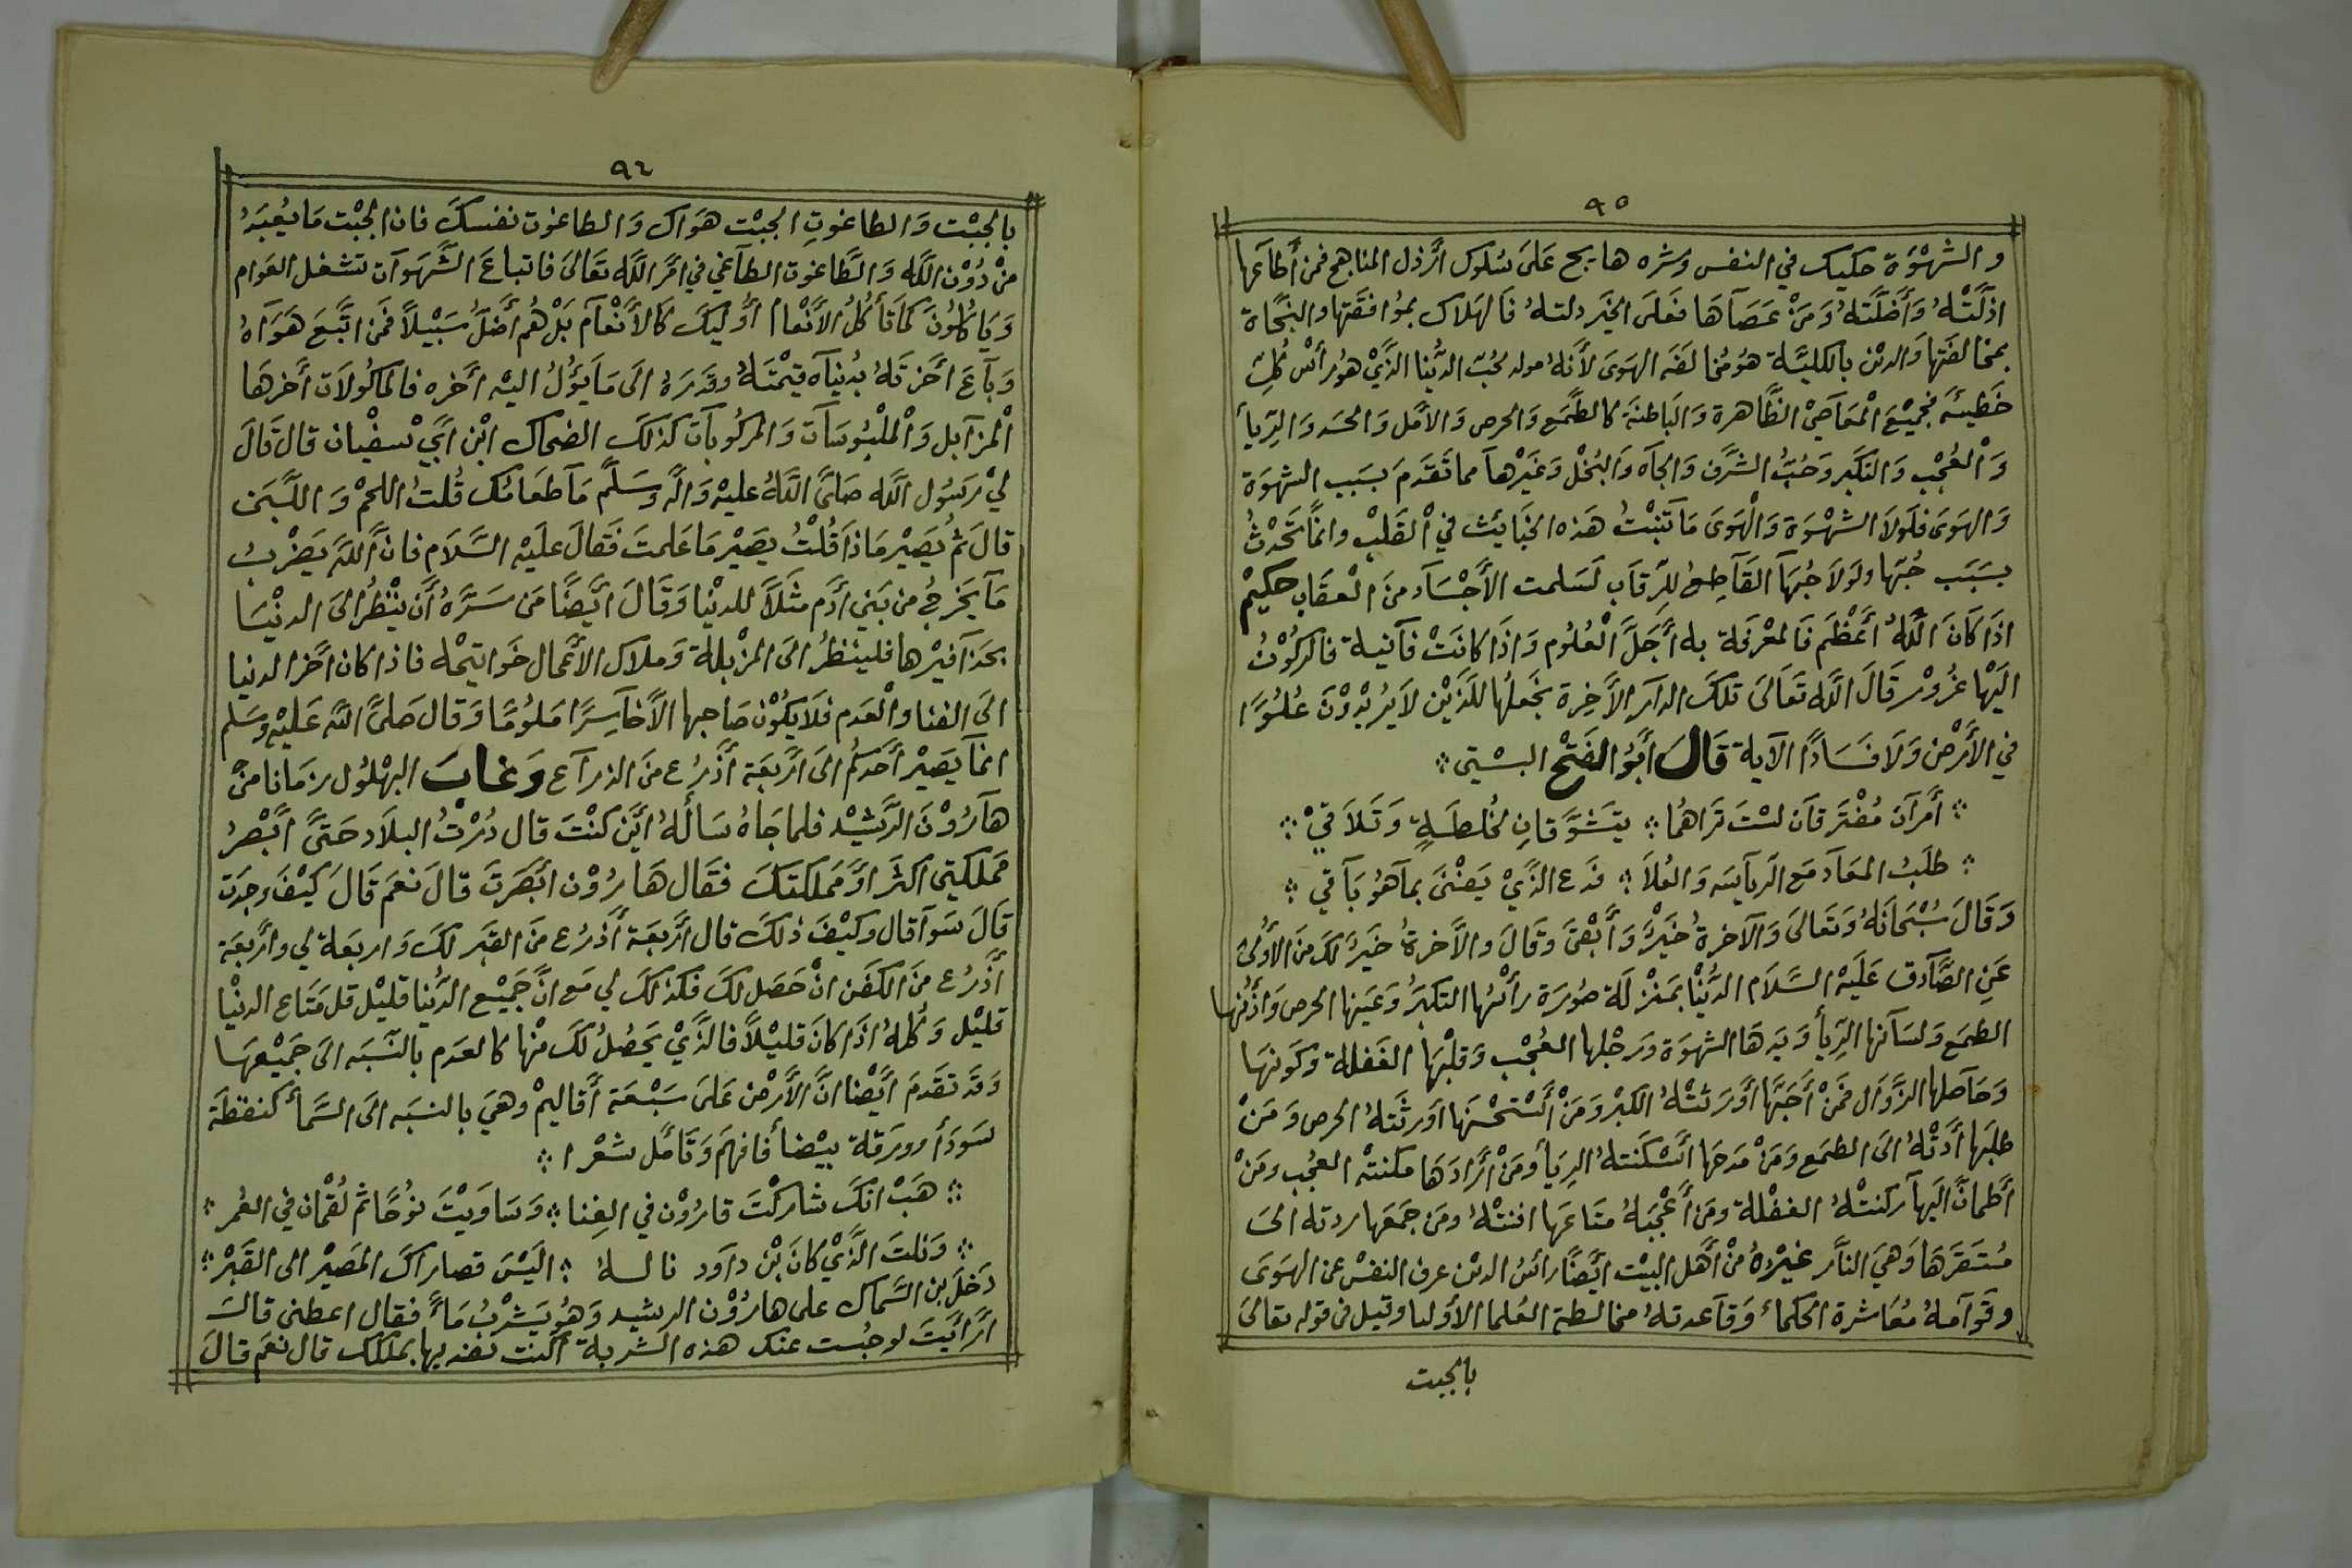 ٩٥
و الشَهْوَة حكيك في النفس وشره هايج عَلَىَ سُلوك اَرْذل المناهج فمن أَطآعها
اذلَّتْهُ وَأَضَلَّتهُ وَمَنْ عَصَآهَا فَعَلَى الخَير دلتهُ فَالهَلاك بموُافقَتها والنجَاة
بمخالفَتها وَالدين بالكليَّة هوَ مُخالفَة الهَوَى لأَنهُ مولد لحُبّ الدُّنيا الذَّيْ هوَُ رأسْ كُلّ
خَطيئَة فجميْعَ الْمَعَآصيْ الظَّاهرة وَالبَاطنَة كالطَّمَع وَالحرص وَالاَمَل وَالحسَد وَالرِّيأ
وَالْعُجْب وَالتكَبر وَحُبُّ الشَرَف وَالجآه وَالبُخْل وَغَيرْهآ مما تَقَدَمَ بسَبَب الشهوَة
وَالهَوَى فلَولاَ الشهْوَة وَالْهَوَى مَا تَنبتْ هَذه الخبَائث في القَلبْ وانماَّ تَحْدثُ
بسَبَب حُبّها ولَولاَ حُبهَآ القَآطِع للرّقاَب لَسَلمت الأجْسَآد منَ العقَاب حكيمْ
اذَا كَانَ اللَّهُ أَعْظَم فَالمعْرفَة به أَجَلَّ الْعُلُوم وَاذَا كانَتْ فآنية فالركُوْنُ
اليَهْا غرُوْر قَالَ اللَّه تَعَالىَ تلكَ الدآر الأَخِرة نجعَلُهَا للَذَيْن لاَيُريْدوْنَ عُلُوًا
في الأَرْض وَلاَ فسَادًا الآية قالَ أَبَوُ الفَتْح البسْتي
أَمرآن مُفْترَقآن لسْتَ تَرَاهُمَا يتَشوَّقان لخُلطَةٍ وَتَلاَقيْ
طلَبُ المعَآد مَع الرَيآسَه وَالعُلاَ فدَع الذَّيْ يَفنْىَ بمآهُوَ بَآقي
وَقَالَ سُبْحَانَهُ وَتَعَالىَ وَالآخرةُ خَيرٌْ وَأَبْقىَ وَقَالَ وَالاَخرةُ خَيرٌ لكَ منَ الأوُلىَ
عَنِ الصَّآدق عَلَيَه السَّلاَم الدُّنْيا بَمنْزلَة صُورَة رأَسُها التكبَرُ وَعَينها الحرص وَاذُنها
الطمَع وَلسَآنها الرّيأ وَيَدهَا الشهوَة وَرجْلها العُجْب وَقلبْهَا الغَفلة وَكَونهَا
وَحَآصلها الزَّوَال فَمَنْ أَحَبَّهَا أَوَرَثتْهُ الكبْر وَمَنْ أَسْتحْسَنهَا اَورثَتهُ الحرص وَمَنْ
طلبَها أَدَتْهُ الىَ الطمَع وَمَنْ مَدحَهَا أَسْكَنتهُ الرِيَأ ومَنْ أَرَادَهَا مكنتهْ العجُب ومَنْ
أَطمأنَّ اليَهآ ركنتْهُ الغفْلة ومَن أَعْجَبَهُ متَاعَها افنتْهُ ومَن جَمَعَها ردته الىَ
مُستقَرهَا وَهيَ النأر غيرُْهُ منْ أَهَل البَيْت ايَضًْا رأسُ الدين عرف النفسْ عن الهَوَىَ
وقَوآمهُ مُعَاشرة الحكماء وَقآعدتهُ مخالطة العُلما الأولياء وقيل في قوله تعَالىَ
بالجبت
٩٦
بالجبْت وَالطاغوتِ الجبْت هَوَاك وَالطاغوت نفسكَ فان الجبْت مَا يعُبَدُ
منْ دُوْن اللَّه وَالطَّاغوت الطآغي في امْر اللَّه تَعَالىَ فاتباعَ الشَّهَوآت تشغل العوَام
وَيَاكُلُونَ كَمَا تَأكُلُ الأَنْعام أوُليكَ كَالاَنْعآم بَلْ هُمْ أضَلُّ سَبيْلاً فَمن اتَّبَعَ هَوَآهُ
وَبآعَ اخَرتَهُ بدُنيآه قيمْتهُ وقدَرهُ الىَ مَا يَؤُلُ اليْه اَخره فالماكُولاَت أَخرهَا
الْمزآبل وَالملْبُوسَآت وَالمركُوبآت كذلكَ الضحاك ابْن ابَيْ سفْيان قالَ قالَ
ليْ رَسُول اللَّه صَلىَّ اللَّهُ عليْه وَاله وسَلمَّ مَآ طعَامُك قُلتُ اللحمْ وَاللَّبَن
قالَ ثمُ يَصيْر مَاذَا قُلْتُ يصَيْر مَا عَلمتَ فَقالَ علَيْه السَّلاَم فانَّ اللَّهَ يَضْربُ
مَآ يَخرجُ من بَني أدَم مثَلاً للدنْيا وَقَالَ ايَضْاً مَن سَرَّهُ أن ينْظُرَ الىَ الدنيْا
بحَذآفيْرها فلينظرُ الىَ المزْبلة وَملاك الأعْمال خَواتيمْه فاذا كان اَخر الدنيا
الىَ الفنا والْعَدم فلاَ يكُوْن صَاحبها الاَّ خآسِرًا مَلوُمًا وَقال صَلىَّ اللَّه عَليْه وسَلم
انمآ يَصيْر أَحَدكُم الىَ ارَبعَة أَذرُع منَ الذرآع وَغابَ البهْلوُل زمَانا منْ
هآرُوْنَ الرَّشيْد فلما جَاهُ سَألهُ ايَن كنْتَ قال دُرْتُ البلاَد حَتىَّ ابَْصرُ
مَملكَتي اكثَر اوَ مَملكتكَ فقَال هَارُوْن ابَصَرتَ قالَ نعَم قَالَ كَيْفَ وجَدَت
قالَ سَوآ قال وكيْفَ ذلكَ قال اَربعَة أَذرُع منَ القبَر لكَ وَاربعَة لي وَاربَعَة
أَذرُع منَ الكفَن انْ حَصَل لكَ فكذلكَ لي مَع انَّ جَميْع الدُّنيا قليْل قل مَتَاع الدنيْا
قليْل وَكُلهُ اذَا كانَ قليْلاً فالذَّيْ يَحصُلُ لكَ منهْا كالعدَم بالنّسَبه الىَ جَميْعهَا
وَقَد تقدَمَ ايَضْا انَّ الأَرْض عَلىَ سَبْعَة أَقاليمْ وهيَ بالنسَبه الىَ السَّمأ كنقطَة
سَودَأ وورَقة بيْضأ فافهَم وَتَأمَل شعْرا
هَبْ انكَ شاركْتَ قارُوْن في الغِنا وَسَاوَيْتَ نوُحًا ثمَ لُقْمان في العُمر
وَنلتَ الذَّيْ كانَ ابْن دآوَد نالهُ اليَسْ قصاراكَ المَصيْر الى القَبرْ
دَخلَ بن السَّماك على هارُوْن الرشيد وَهُو يَشربُْ مَاءً فقال اعظنى قالَ
ارَأيَتَ لو حبُست عنك هذه الشربة اكنت تفديها بملكك قال نعَم قالَ